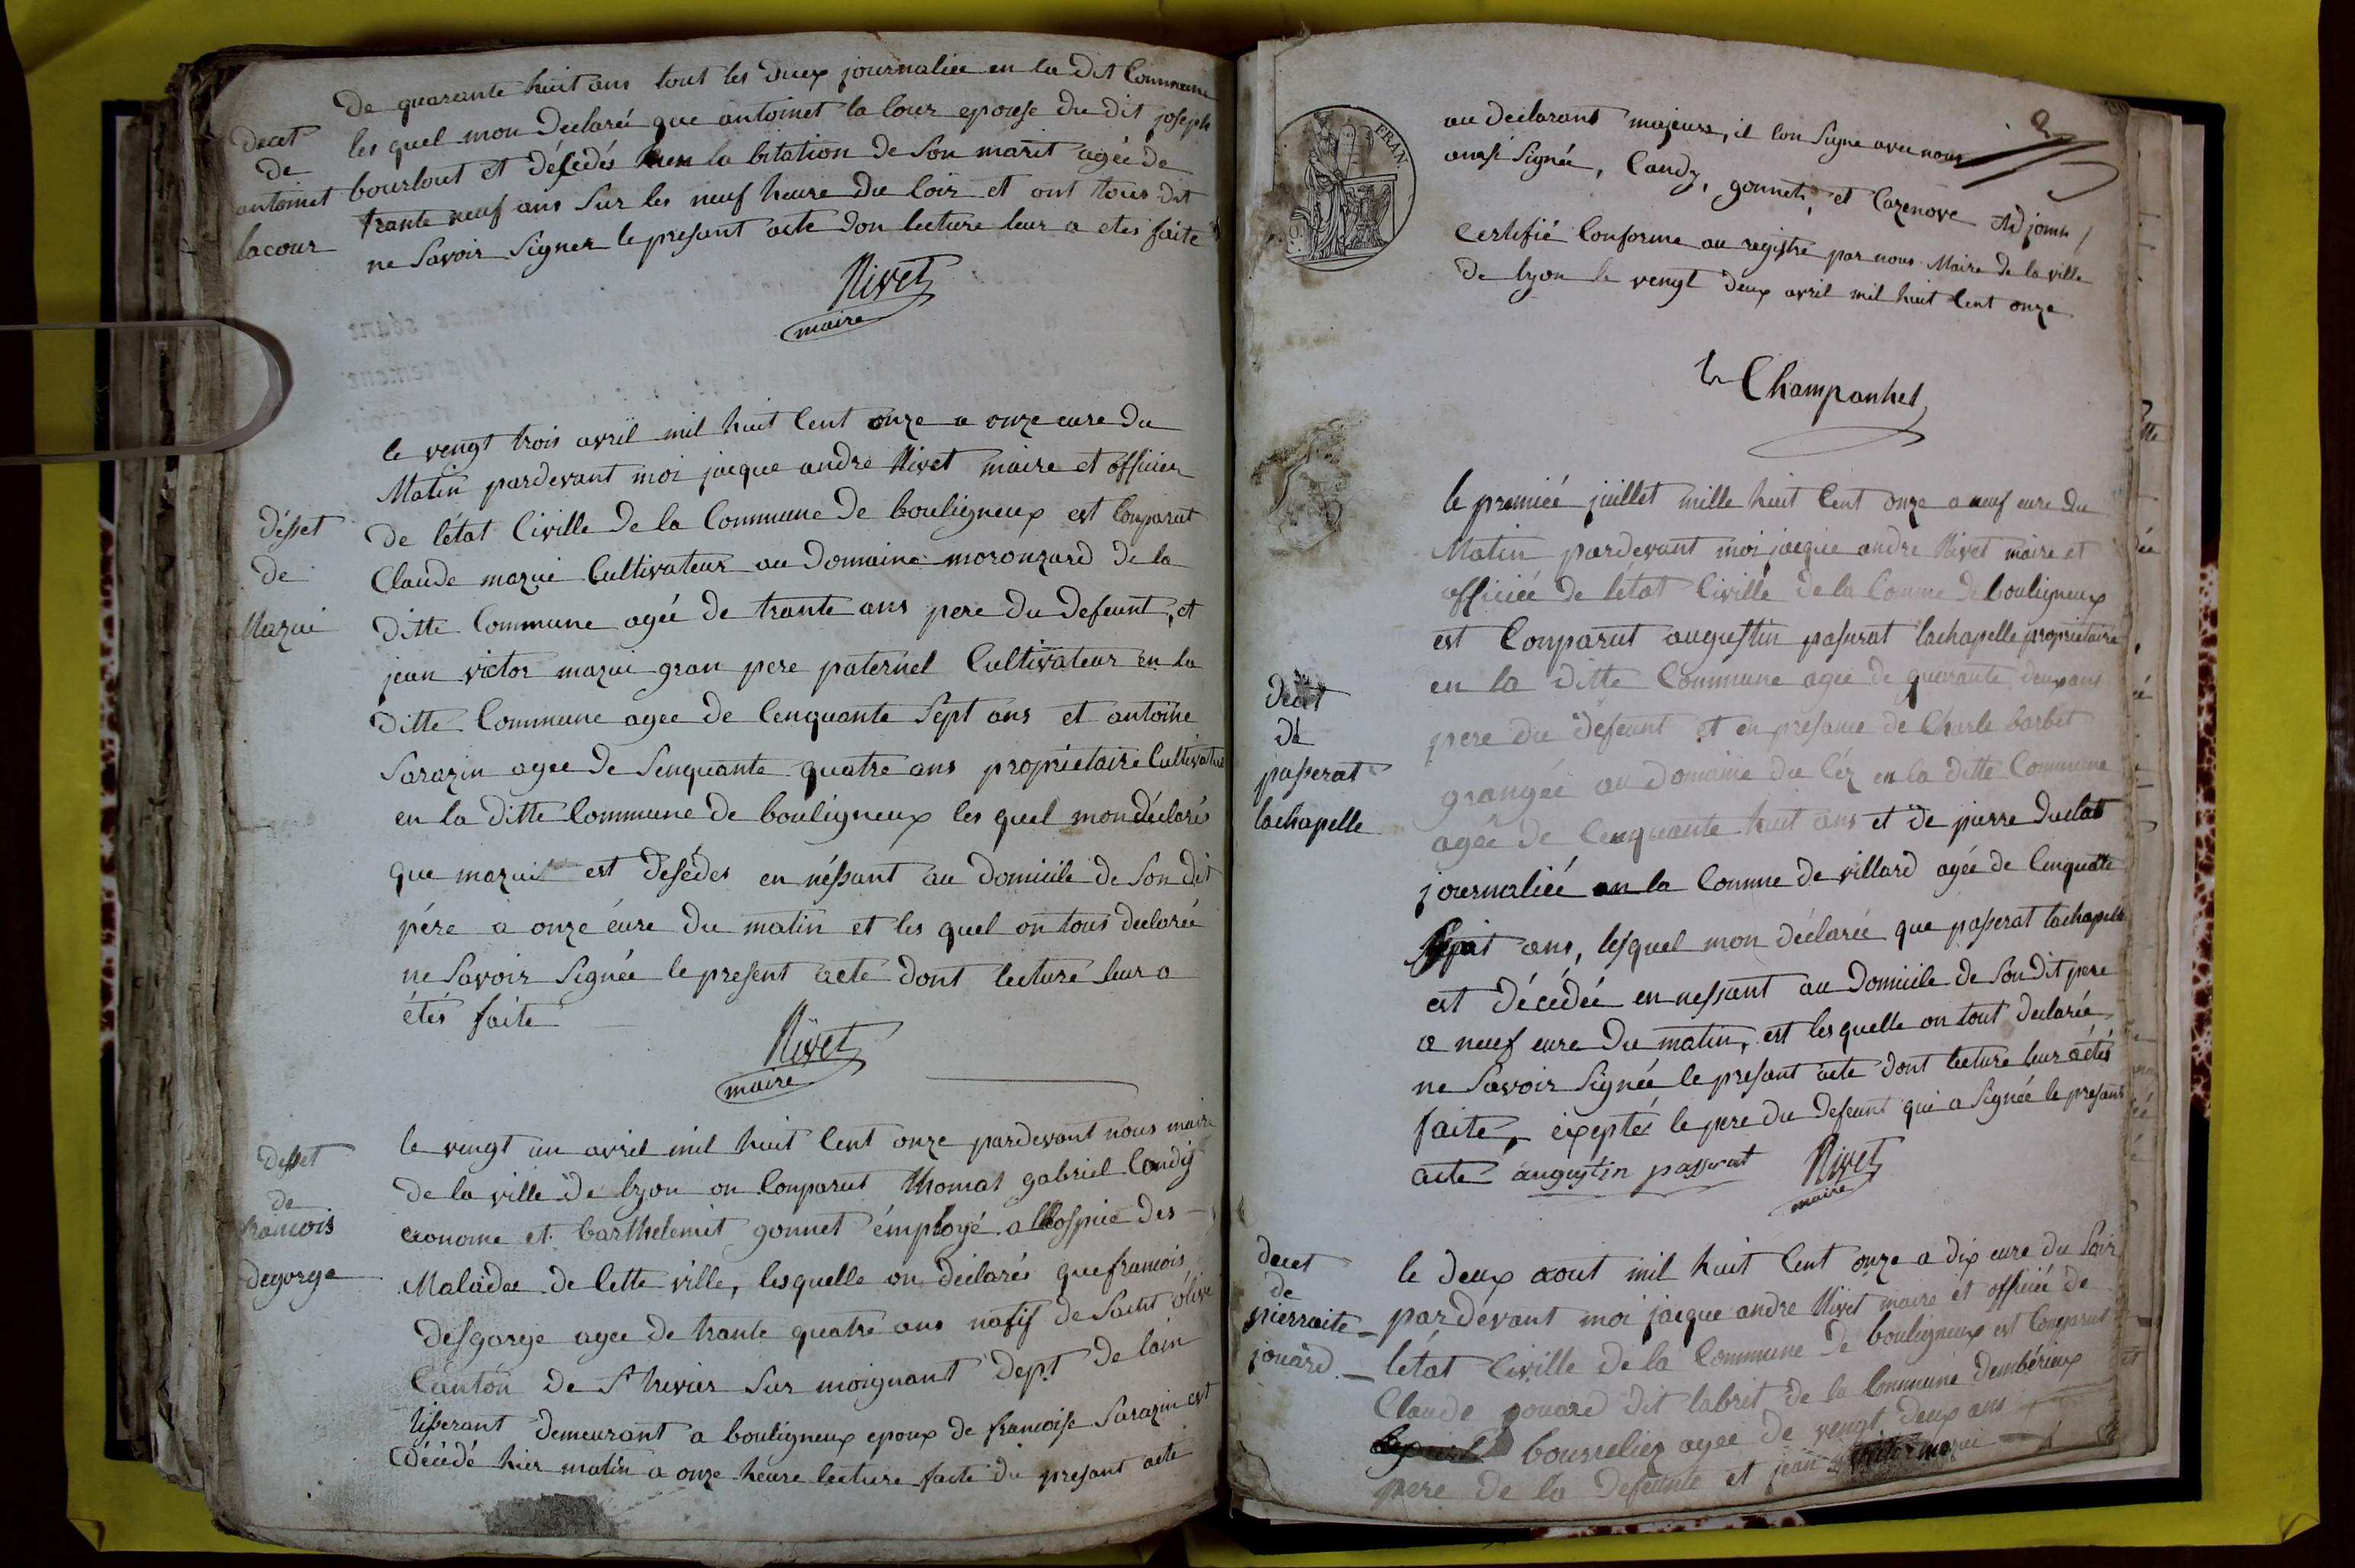 de quarante huit ans tout les deux journaliee en la dit Commune
decet
de
antoinet
lacour
les quel mon declareé que antoinet la Cour epouse du dit joseph
bourlout et déçedés la bitation de Son marit agée de
trante neuf ans Sur les neuf heure du Soir et ont tous dit
ne Savoir Signer le presant acte don lecture leur a etés faite
Rivet
maire
le vengt trois avril mil huit Cent onze a onze eure du
Matin pardevant moi jacque andre Rivet maire et officier
désset
de
Mazui
de létat Civille de la Commune de bouligneux est Comparut
Claude mazui Cultivateur au domaine moronzard de la
ditte Commune agée de trante ans pere du defeunt, et
jean victor mazui gran pere paternel Cultivateur en la
ditte Commune agee de Cenquante Sept ans et antoine
Sarazin agee de Senquante quatre ans propriétaire Cultivateur
en la ditte Commune de bouligneux les quel mon déclarés
que mazui est désédés en néssant au domicile de Son dit
pére a onze éure du matin et les quel on tous declareé
ne Savoir Signée le present acte dont lecture leur a
étés faite
Rivet
maire
desset
de
francois
degorge
le vengt un avril mil huit Cent onze pardevant nous maire
de la ville de lyon on Comparut thomas gabriel Candy
econome et barthelemit gonnet émployé a lhospice des
Maladee de Cette ville, lesquelle on déclarés que francois
desgorge agee de trante quatre ans natif de Saint ólive
Canton de St trivier Sur moignant Dept de lain
tisserant demeurant a bouligneux epoux de francoise Sarazin est
décédé hier matin a onze heure lecture faite du presant acte
2
au declarant majeurs, il lon Signe avec nous
ansi Signée, Candy, gonnet, et Cazenove Adjoint
Certifié Conforme au registre par nous Maire de la ville
de lyon le vengt deux avril mil huit Cent onze
FRAN
Champanhet
le premieé juillet mille huit Cent onze a neuf eure du
Matin pardevant moi jacque andre Rivet maire et
officieé de létat Civille de la Comune de bouligneux
est Comparut augustin passerat lachapelle proprietaire
decet
de
passerat
lachapelle
en la ditte Commune agee de quarante deux ans
pere du defeunt et en presance de Charle barbet
grangée au domaine du Céz en la ditte Commune
agée de Cenquante huit ans et de pierre duclat
journalieé en la Comune de villard agée de Cenquatte
Sept ans, lesquel mon déclareé que passerat lachapele
est décédeé en nessant au domicile de Son dit pere
a neuf eure du matin, est les quelle on tout declareé
ne Savoir Signée le presant acte dont lecture leur a étés
faite, exeptés le pere du defeunt qui a Signée le presant
acte augustin passerat Rivet
maire
decet
de
pierraite
jouard
le deux aout mil huit Cent onze a dix eure du Soir
pardevant moi jacque andre Rivet maire et officieé de
létat Civille de la Commune de bouligneux est Comparut
Claude jouard dit labrit de la Commune dembérieux
bourrelier agee de vengt deux ans
pere de la defeunte et jean victor mazui